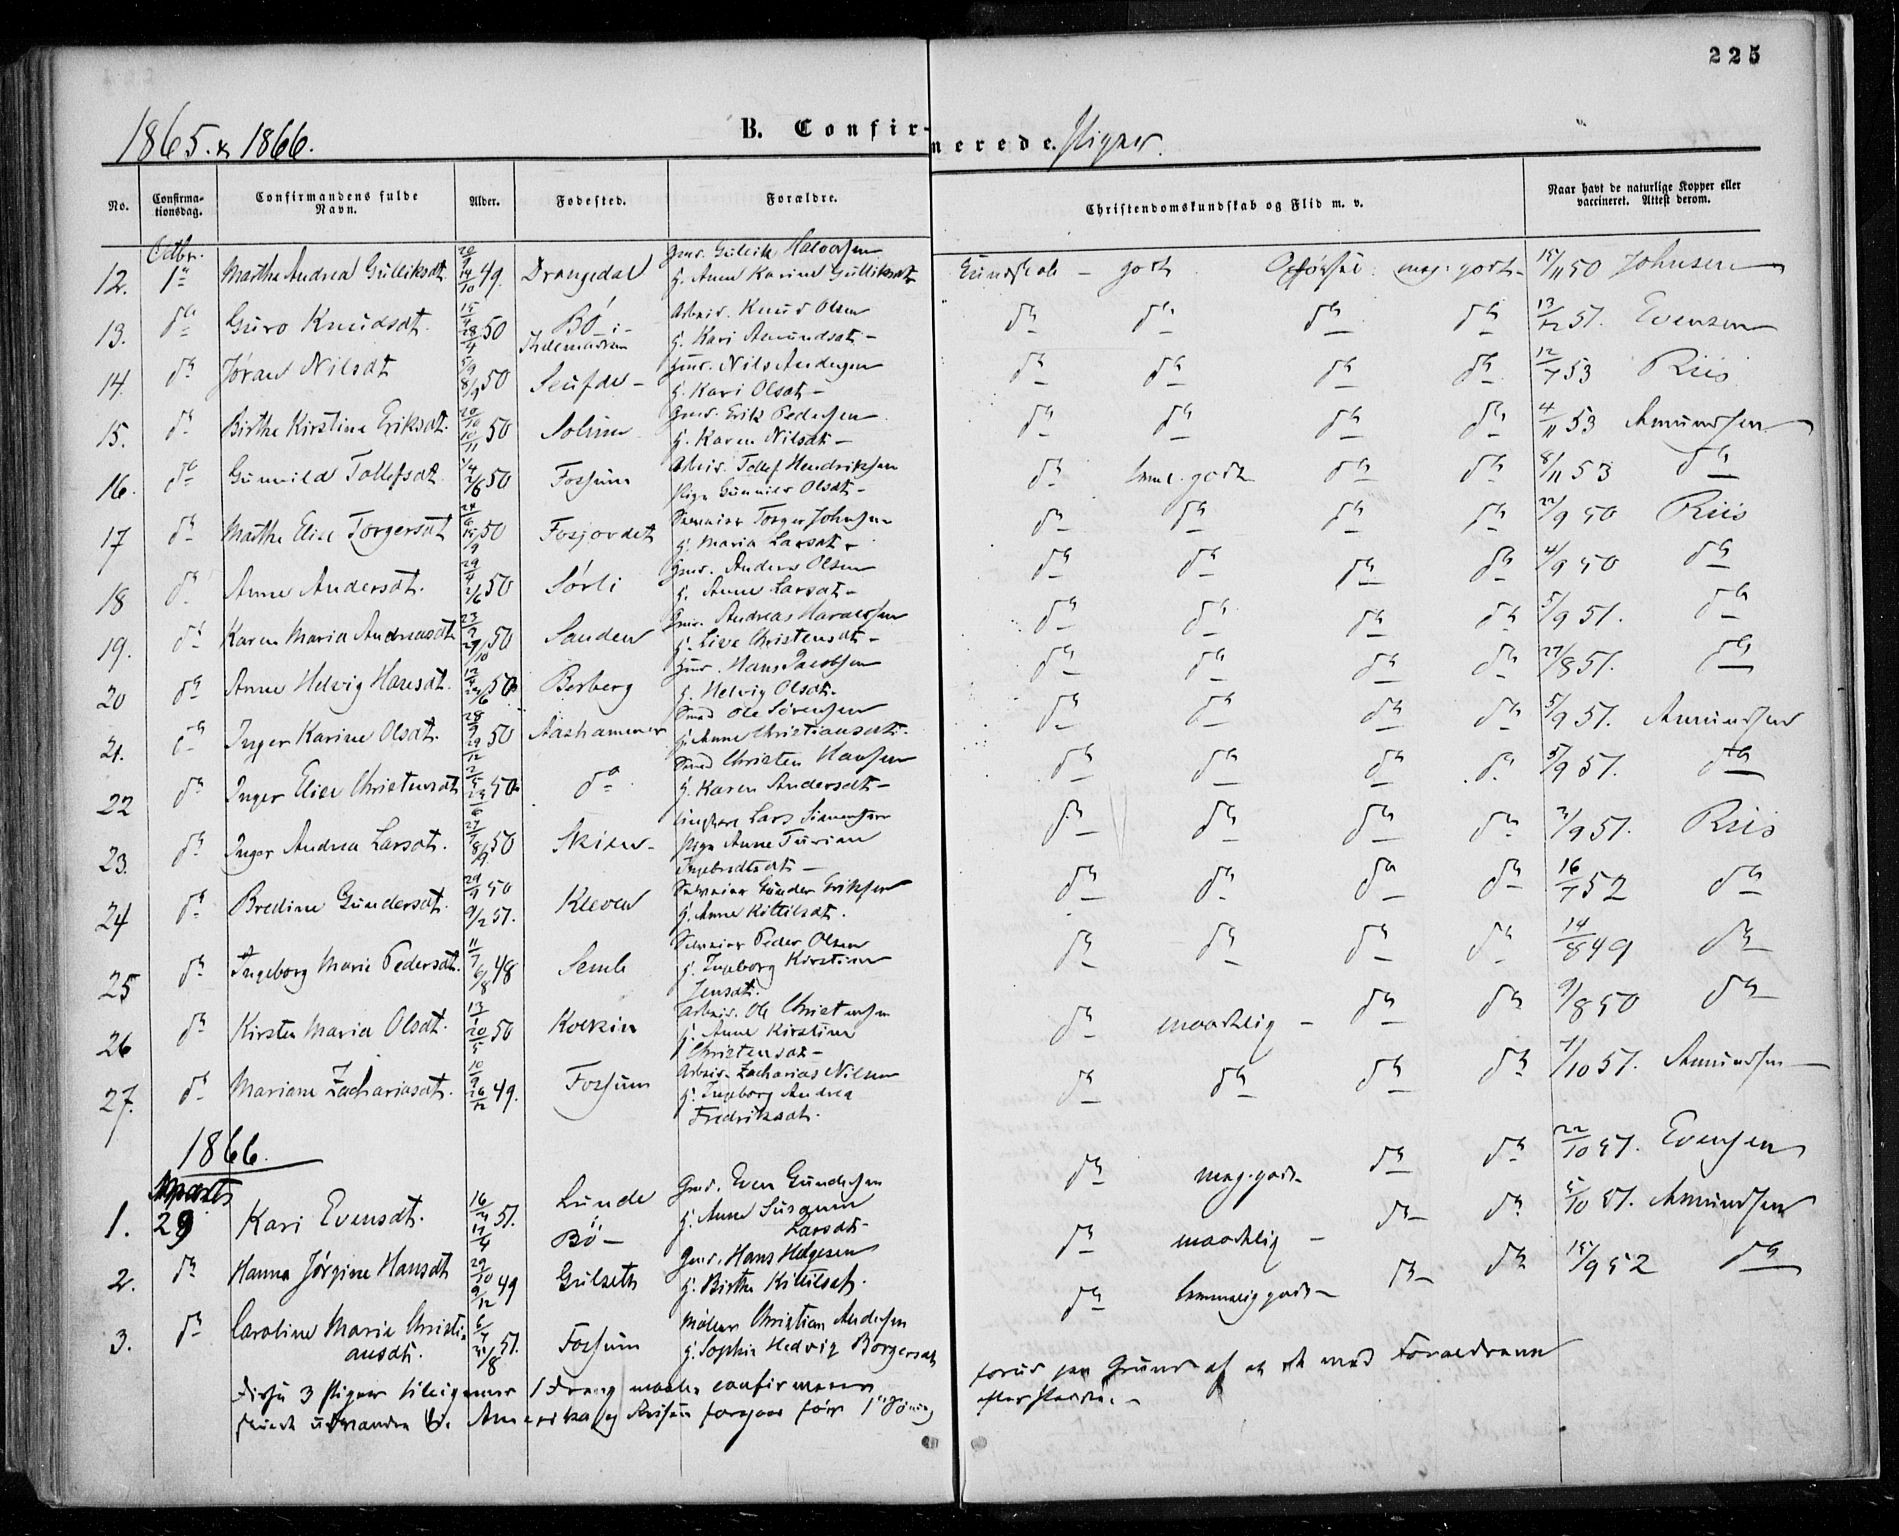 225
1865. & 1866.
B. Confirmerede. Piger.
No.
Confirmationsdag.
Confirmandens fulde Navn.
Alder.
Fødested.
Forældre.
Christendomskundskab og Flid m. v.
Naar havt de naturlige Kopper eller vaccineret. Attest derom.
Octbr.
12. 1ste Marthe Andrea Gulliksdt. 49. Drangedal Gmd. Gullik Halvorsen
H. Anne Karine Gulliksdt. Kundskab - godt Opførsel meg. godt - 15/11 50 Johnsen
13. do Guro Knudsdt. 50 Bø i Thelemarken Arbeid. Knud Olsen
H. Kari Amundsdt. - do do do do 13/12 51. Evensen
14. do Jøran Nilsdt 8/9 50 Huusm. Nils Andersen
H. Kari Olsdt. - do do do do 12/7 53 Riis
15. do Birthe Kirstine Eriksdt. 20/10 10/11 50 Solum Gmd. Erik Pedersen
H. Karen Nilsdt. - do do do do 4/11 53 Amundsen
16. do Gunnild Tollefsdt. 2/6 50 Fossum Arbeid. Tollef Hendriksen
Pige Gunnild Olsdt. - do temmel. godt do do 8/11 53 do
17 do Marthe Elise Torgersdt 24/6 15/9 50 Fosjordet Torger Johnsen
H. Maria Larsdt. - do do do do 22/9 50 Riis
18 do Anne Andersdt. 29/4 2/6 50 Sørli Gmd. Anders Olsen
H. Anne Larsdt. - do do do do 4/9 50 do
19. do Karen Maria Andreasdt 29/10 50 Sanden Gmd. Andreas Haraldsen
H. Live Christensdt. - do do do do 5/9 51. do
20 do Anne Helvig Hansdt. 50 Berberg Hans Jacobsen
H. Helvig Olsdt. do do do do 27/8 51. do
21. do Inger Karine Olsdt. 28/9 29/12 50 Aashammer Smed Ole Sørensen
H. Anne Christiansdt. do do do do 5/9 51. Amundsen
22 do Inger Elise Christensdt 50 do Smed Christen Hansen
H. Karen Andersdt. - do do do do 5/9 51. do
23. do Inger Andrea Larsdt. 8/9 50 Skien - Ungkarl Lars Simensen
Pige Anne Turine
Ingebretsdt. - do do do do 2/9 51. Riis
24 do Bredine Gundersdt. 29/9 50 9/2 51. Kleven Gunder Eriksen
H. Anne Kittilsdt. do do do do 16/7 52 do
25 do Ingeborg Marie Pedersdt. 11/7 6/8 48 Semb Peder Olsen
H. Ingeborg Kirstine
Jensdt. do do do do 14/8 49 do
26 do Kirsten Maria Olsdt. 13/1 20/5 50 Arbeid. Ole Christensen
H. Anne Kirstine
Christensdt - do maadelig - do do 9/8 50 do
27. do Mariane Zachariasdt. 10/9 26/12 49. Fossum Arbeid. Zacharias Nilsen
H. Ingeborg Andrea
Fredriksdt. do do do do 7/10 51. Amundsen
1866.
Marts
1. 29 Kari Evensdt. 51. Lunde
Bø - Gmd. Even Gundersen
H. Anne Susanne
Larsdt - do meg. godt - do do 22/10 51. Evensen
2. do Hanna Jørgine Hansdt 29/10 9/12 49 Gulseth Gmd. Hans Helgesen
H. Birthe Kittilsdt. do maadelig - do do 5/10 51. Amundsen
3. do Caroline Marie Christiansdt. 51. Fossum Møller Christian Andersen
H. Sophie Hedvig Borgersdt do temmelig godt - do do 15/9 52 do
Disse 3 Piger tilligemed 1 Dreng confirmeres
forud paa Grund af at de med Forældrene
skulde udvandre til Amerika og Reisen foregaar før